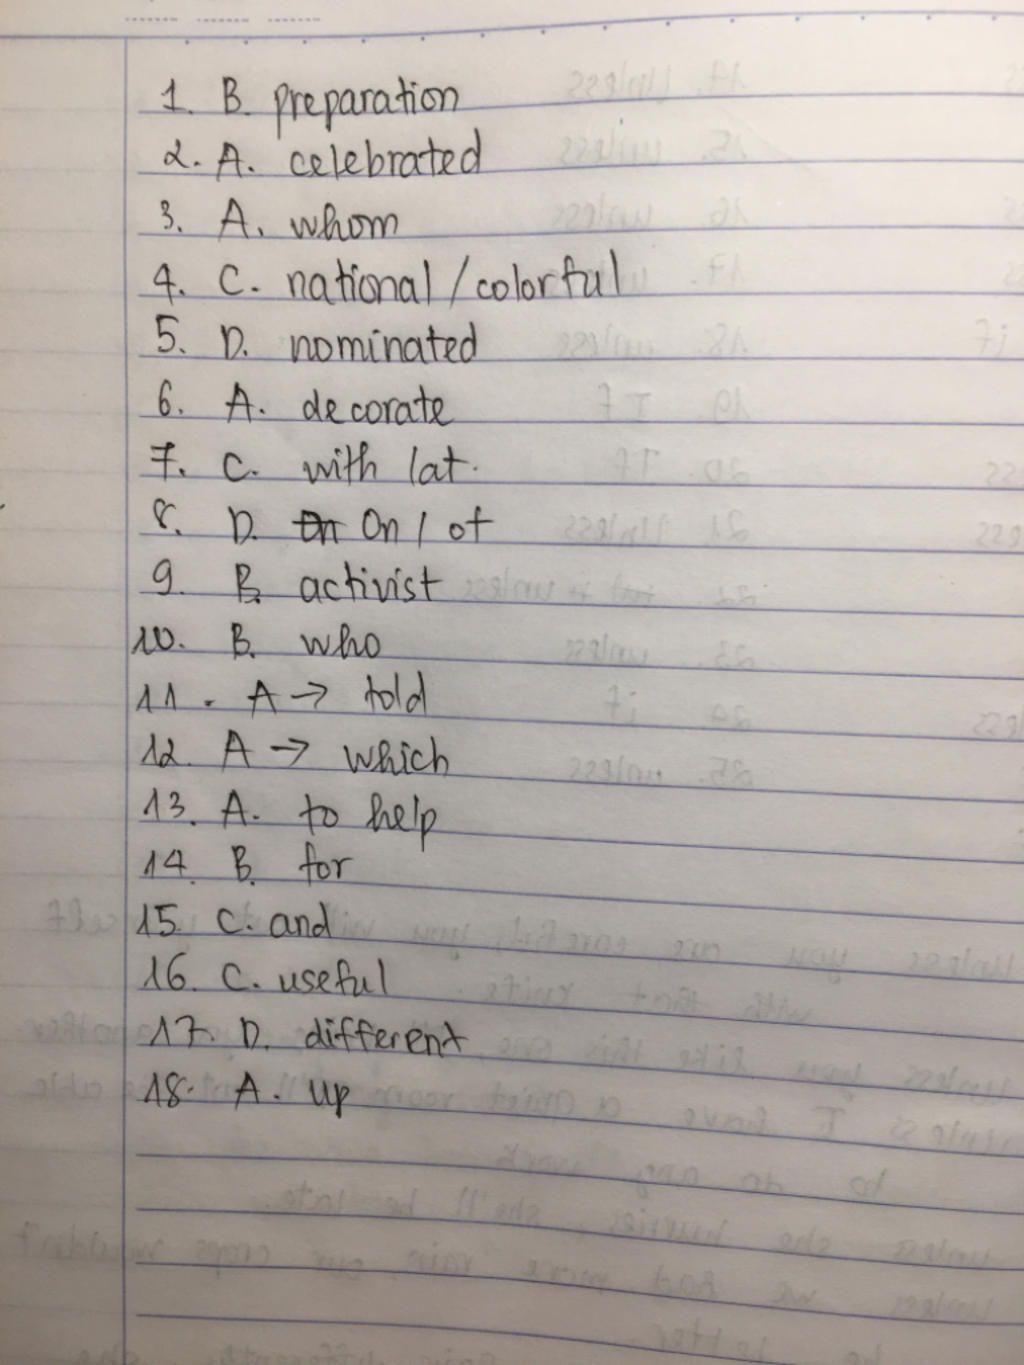 1. B. preparation
2. A. celebrated
3. A. whom
4. C. national / colorful
5. D. nominated
6. A. decorate
7. C. with lat.
8. D. On / of
9. B. activist
10. B. who
11. A → told
12. A → which
13. A. to help
14. B. for
15. C. and
16. C. useful
17. D. different
18. A. up